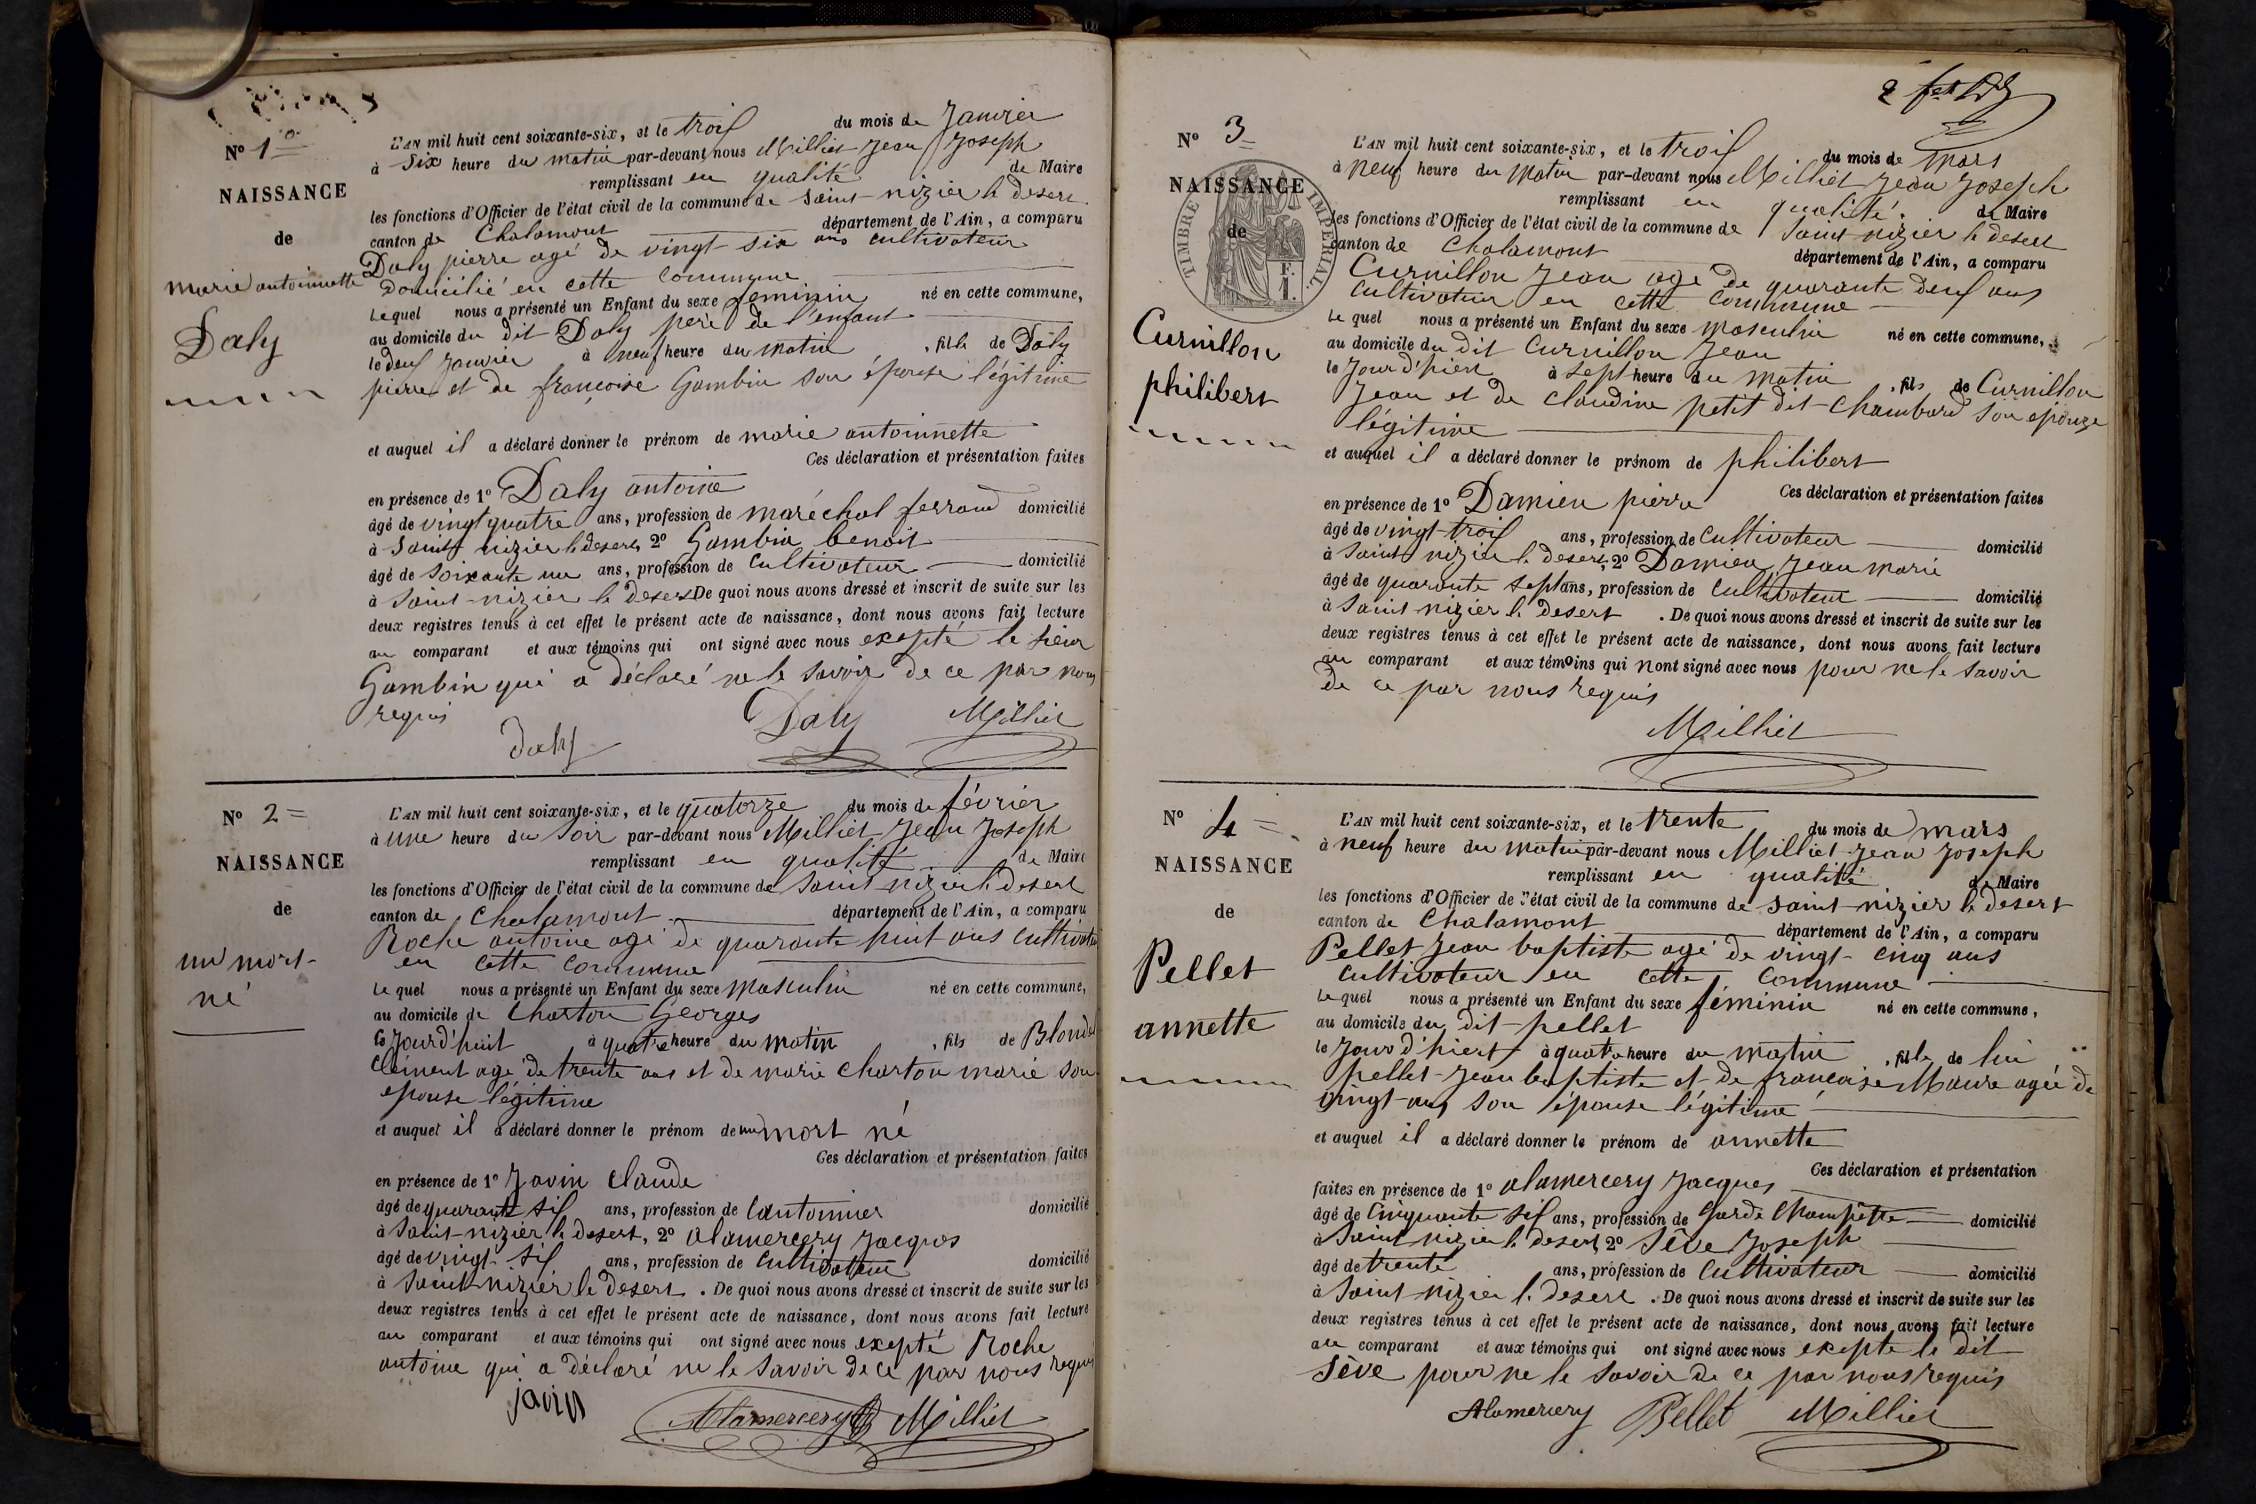 N° 1
NAISSANCE
de
marie antoinnette
Daly
L'AN mil huit cent soixante-six, et le trois du mois de Janvier
à six heure du matin par-devant nous Milliet Jean Joseph
remplissant en qualité de Maire
les fonctions d'Officier de l'état civil de la commune de saint-nizier le desert
canton de Chalamont département de l'Ain, a comparu
Daly pierre agé de vingt-six ans cultivateur
domicilié en cette commune
Lequel nous a présenté un Enfant du sexe feminin né en cette commune,
au domicile du dit Daly père de l'enfant
le deux Janvier à neuf heure du matin, fille de Daly
pierre et de françoise Gambin son épouse légitime
et auquel il a déclaré donner le prénom de marie antoinnette
Ces déclaration et présentation faites
en présence de 1° Daly antoine
âgé de vingt quatre ans, profession de maréchal ferrand domicilié
à saint nizier le desert, 2° Gambin benoit
âgé de soixante un ans, profession de Cultivateur domicilié
à saint-nizier le desert De quoi nous avons dressé et inscrit de suite sur les
deux registres tenus à cet effet le présent acte de naissance, dont nous avons fait lecture
au comparant et aux témoins qui ont signé avec nous excepté le sieur
Gambin qui a déclaré ne le savoir de ce par nous
requis
Daly Daly Milliet
N° 2
NAISSANCE
de
un mort-
né
L'AN mil huit cent soixante-six, et le quatorze du mois de février
à une heure du soir par-devant nous Milliet Jean Joseph
remplissant en qualité de Maire
les fonctions d'Officier de l'état civil de la commune de saint-nizier le desert
canton de Chalamont département de l'Ain, a comparu
Roche antoine agé de quarante huit ans cultivateur
en cette commune
Lequel nous a présenté un Enfant du sexe masculin né en cette commune,
au domicile de Charton Georges
le Jourd'huit à quatre heure du matin, fils de Blondel
Clément agé de trente ans et de marie charton marie son
epouse légitime
et auquel il a déclaré donner le prénom de un mort né
Ces déclaration et présentation faites
en présence de 1° Javin claude
âgé de quarante six ans, profession de Cantonnier domicilié
à saint-nizier le desert, 2° alamercery Jacques
âgé de vingt-six ans, profession de Cultivateur domicilié
à saint nizier le desert. De quoi nous avons dressé et inscrit de suite sur les
deux registres tenus à cet effet le présent acte de naissance, dont nous avons fait lecture
au comparant et aux témoins qui ont signé avec nous excepté Roche
antoine qui a déclaré ne le savoir de ce par nous requis
Javin Alamercery Milliet
N° 3
NAISSANCE
de
TIMBRE IMPERIAL
F.
1.
Curnillon
philibert
L'AN mil huit cent soixante-six, et le trois du mois de mars
à neuf heure du matin par-devant nous Milliet Jean Joseph
remplissant en qualité. de Maire
les fonctions d'Officier de l'état civil de la commune de Saint nizier le desert
canton de Chalamont département de l'Ain, a comparu
Curnillon Jean agé de quarante deux ans
cultivateur en cette commune
Le quel nous a présenté un Enfant du sexe masculin né en cette commune,
au domicile du dit Curnillon Jean
le Jour d'hiert à sept heure du matin, fils de Curnillon
Jean et de Claudine petit dit-chambard son epouze
légitime
et auquel il a déclaré donner le prénom de philibert
Ces déclaration et présentation faites
en présence de 1° Damien pierre
âgé de vingt-trois ans, profession de Cultivateur domicilié
à saint nizier le desert, 2° Damien Jean marie
âgé de quarante sept ans, profession de Cultivateur domicilié
à saint nizier le desert. De quoi nous avons dressé et inscrit de suite sur les
deux registres tenus à cet effet le présent acte de naissance, dont nous avons fait lecture
au comparant et aux témoins qui nont signé avec nous pour ne le savoir
de ce par nous requis
Milliet
N° 4
NAISSANCE
de
Pellet
annette
L'AN mil huit cent soixante-six, et le trente du mois de mars
à neuf heure du matin par-devant nous Milliet Jean Joseph
remplissant en qualité de Maire
les fonctions d'Officier de l'état civil de la commune de saint-nizier le desert
canton de Chalamont département de l'Ain, a comparu
Pellet Jean baptiste agé de vingt-cinq ans
cultivateur en cette commune
Le quel nous a présenté un Enfant du sexe féminin né en cette commune,
au domicile du dit-pellet
le Jour d'hiert à quatre heure du matin, fille de lui
pellet Jean baptiste et de françoise Maure agée de
vingt-ans son épouse légitime
et auquel il a déclaré donner le prénom de annette
Ces déclaration et présentation
faites en présence de 1° alamercery Jacques
âgé de Cinquante six ans, profession de garde Champêtre domicilié
à saint nizier le desert 2° Sève Joseph
âgé de trente ans, profession de Cultivateur domicilié
à Saint nizier le desert. De quoi nous avons dressé et inscrit de suite sur les
deux registres tenus à cet effet le présent acte de naissance, dont nous avons fait lecture
au comparant et aux témoins qui ont signé avec nous excepte le dit
Sève pour ne le savoir de ce par nous requis
Alamercery Pellet Milliet